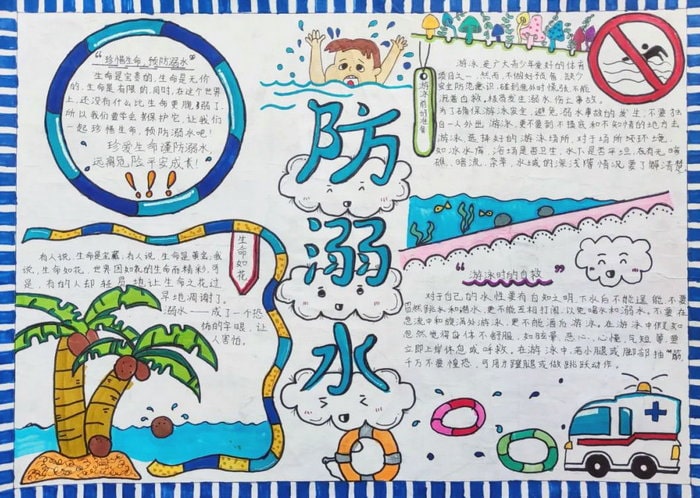 "珍惜生命,预防溺水"
生命是宝贵的,生命是无价
的,生命是有限的,同时,在这个世界
上,还没有什么比生命更脆弱了,
所以我们要学会来保护它,让我们一
起珍惜生命,预防溺水吧!
珍爱生命谨防溺水,
远离危险平安成长!
!!!
防
溺
水
游泳前的准备
游泳是广大青少年爱好的体育
项目之一,然而,不做好准备、缺少
安全防范意识,碰到意外时慌张,不能
沉着自救,极易发生溺水伤亡事故。
为了确保游泳安全,避免溺水事故的发生,不要独
自一人外出游泳,更不要到不摸底和不知水情的地方去
游泳。选择好的游泳场所,对于场所的环境,
如水库、浴场是否卫生,水下是否平坦,有无暗
礁、暗流、杂草,水域的深浅等情况要了解清楚
生命如花
有人说,生命是宝藏,有人说,生命是黄金,我
说,生命如花,世界因如花的生命而精彩,可
是,有的人却轻易地让生命之花过
早地凋谢了。
溺水——成了一个恐
怖的字眼,让
人害怕。
"游泳时的自救"
对于自己的水性要有自知之明,下水后不能逞能,不要
贸然跳水和潜水,更不能互相打闹,以免喝水和溺水。不要在
急流中和漩涡处游泳,更不能酒后游泳。在游泳中如果
忽然觉得身体不舒服,如眩晕、恶心、心慌、气短等,要
立即上岸休息或呼救。在游泳中,若小腿或脚部抽筋,
千万不要惊慌,可用力蹬腿或做跳跃动作。